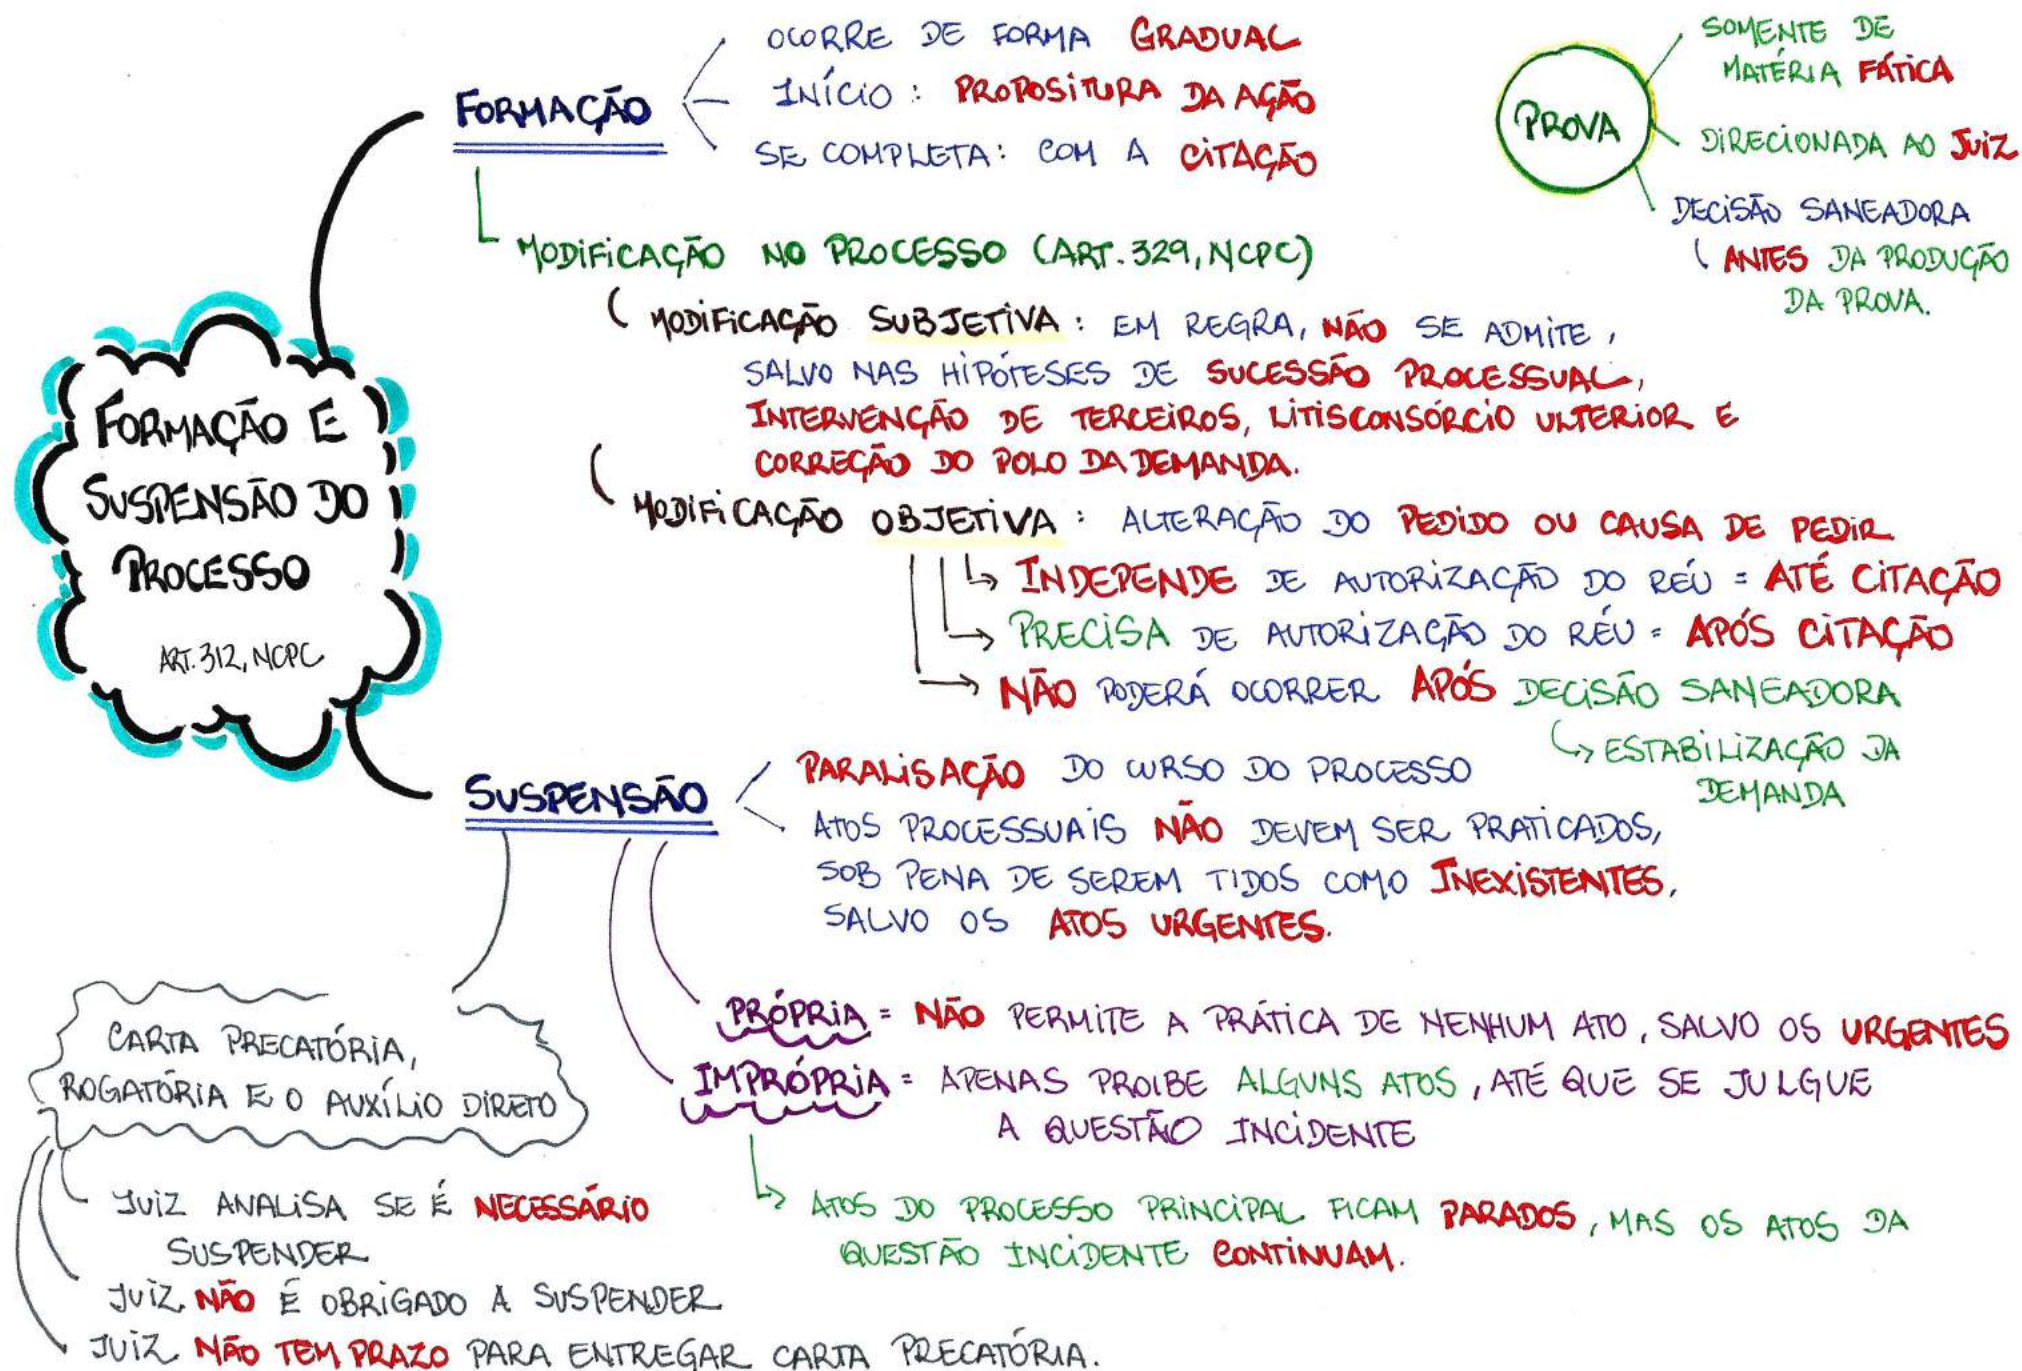 FORMAÇÃO E
SUSPENSÃO DO
PROCESSO
ART. 312, NCPC
FORMAÇÃO
OCORRE DE FORMA GRADUAL
INÍCIO: PROPOSITURA DA AÇÃO
SE COMPLETA: COM A CITAÇÃO
MODIFICAÇÃO NO PROCESSO (ART. 329, NCPC)
MODIFICAÇÃO SUBJETIVA: EM REGRA, NÃO SE ADMITE,
SALVO NAS HIPÓTESES DE SUCESSÃO PROCESSUAL,
INTERVENÇÃO DE TERCEIROS, LITISCONSÓRCIO ULTERIOR E
CORREÇÃO DO POLO DA DEMANDA.
MODIFICAÇÃO OBJETIVA: ALTERAÇÃO DO PEDIDO OU CAUSA DE PEDIR
INDEPENDE DE AUTORIZAÇÃO DO RÉU = ATÉ CITAÇÃO
PRECISA DE AUTORIZAÇÃO DO RÉU = APÓS CITAÇÃO
NÃO PODERÁ OCORRER APÓS DECISÃO SANEADORA
ESTABILIZAÇÃO DA
DEMANDA
PROVA
SOMENTE DE
MATÉRIA FÁTICA
DIRECIONADA AO JUIZ
DECISÃO SANEADORA
ANTES DA PRODUÇÃO
DA PROVA.
SUSPENSÃO
PARALISAÇÃO DO CURSO DO PROCESSO
ATOS PROCESSUAIS NÃO DEVEM SER PRATICADOS,
SOB PENA DE SEREM TIDOS COMO INEXISTENTES,
SALVO OS ATOS URGENTES.
PRÓPRIA = NÃO PERMITE A PRÁTICA DE NENHUM ATO, SALVO OS URGENTES
IMPRÓPRIA = APENAS PROIBE ALGUNS ATOS, ATÉ QUE SE JULGUE
A QUESTÃO INCIDENTE
ATOS DO PROCESSO PRINCIPAL FICAM PARADOS, MAS OS ATOS DA
QUESTÃO INCIDENTE CONTINUAM.
CARTA PRECATÓRIA,
ROGATÓRIA E O AUXÍLIO DIRETO
JUIZ ANALISA SE É NECESSÁRIO
SUSPENDER
JUIZ NÃO É OBRIGADO A SUSPENDER
JUIZ NÃO TEM PRAZO PARA ENTREGAR CARTA PRECATÓRIA.